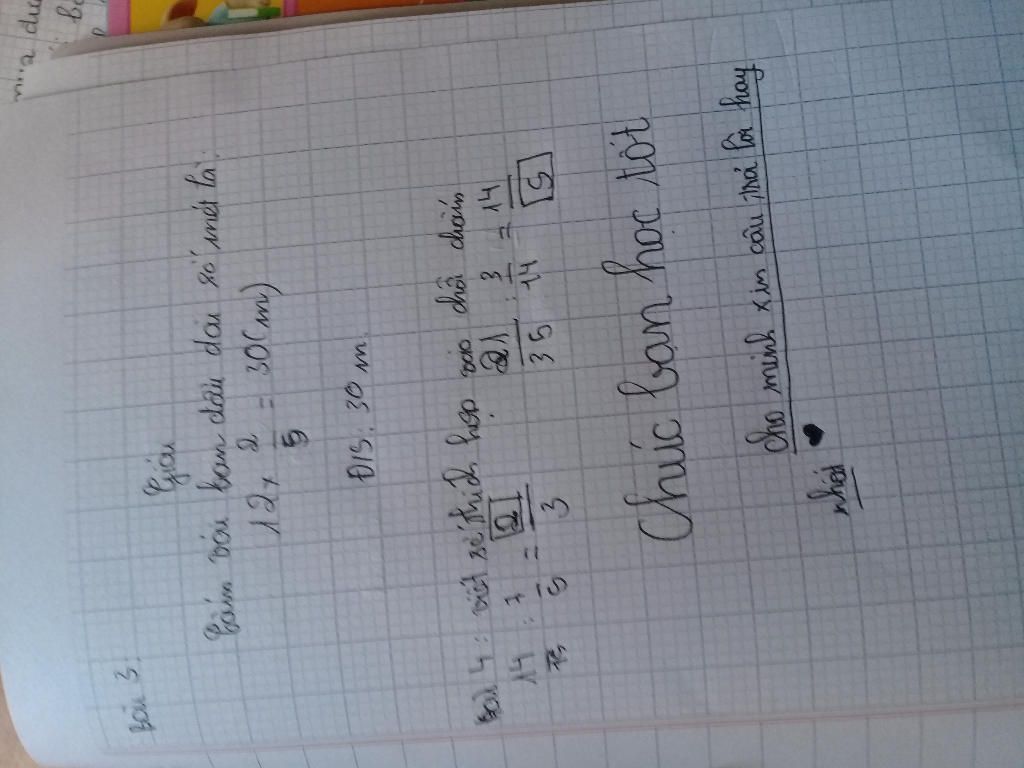 Bài 3.
Giải
Tấm vải ban đầu dài số mét là:
12 x 2/5 = 30 (m)
Đ/S: 30 m.
Bài 4: viết số thích hợp vào chỗ chấm
14/15 : 7/5 = 21/3 . 21/35 : 3/14 = 14/5
Chúc bạn học tốt
cho mình xin câu trả lời hay
nhất ♥